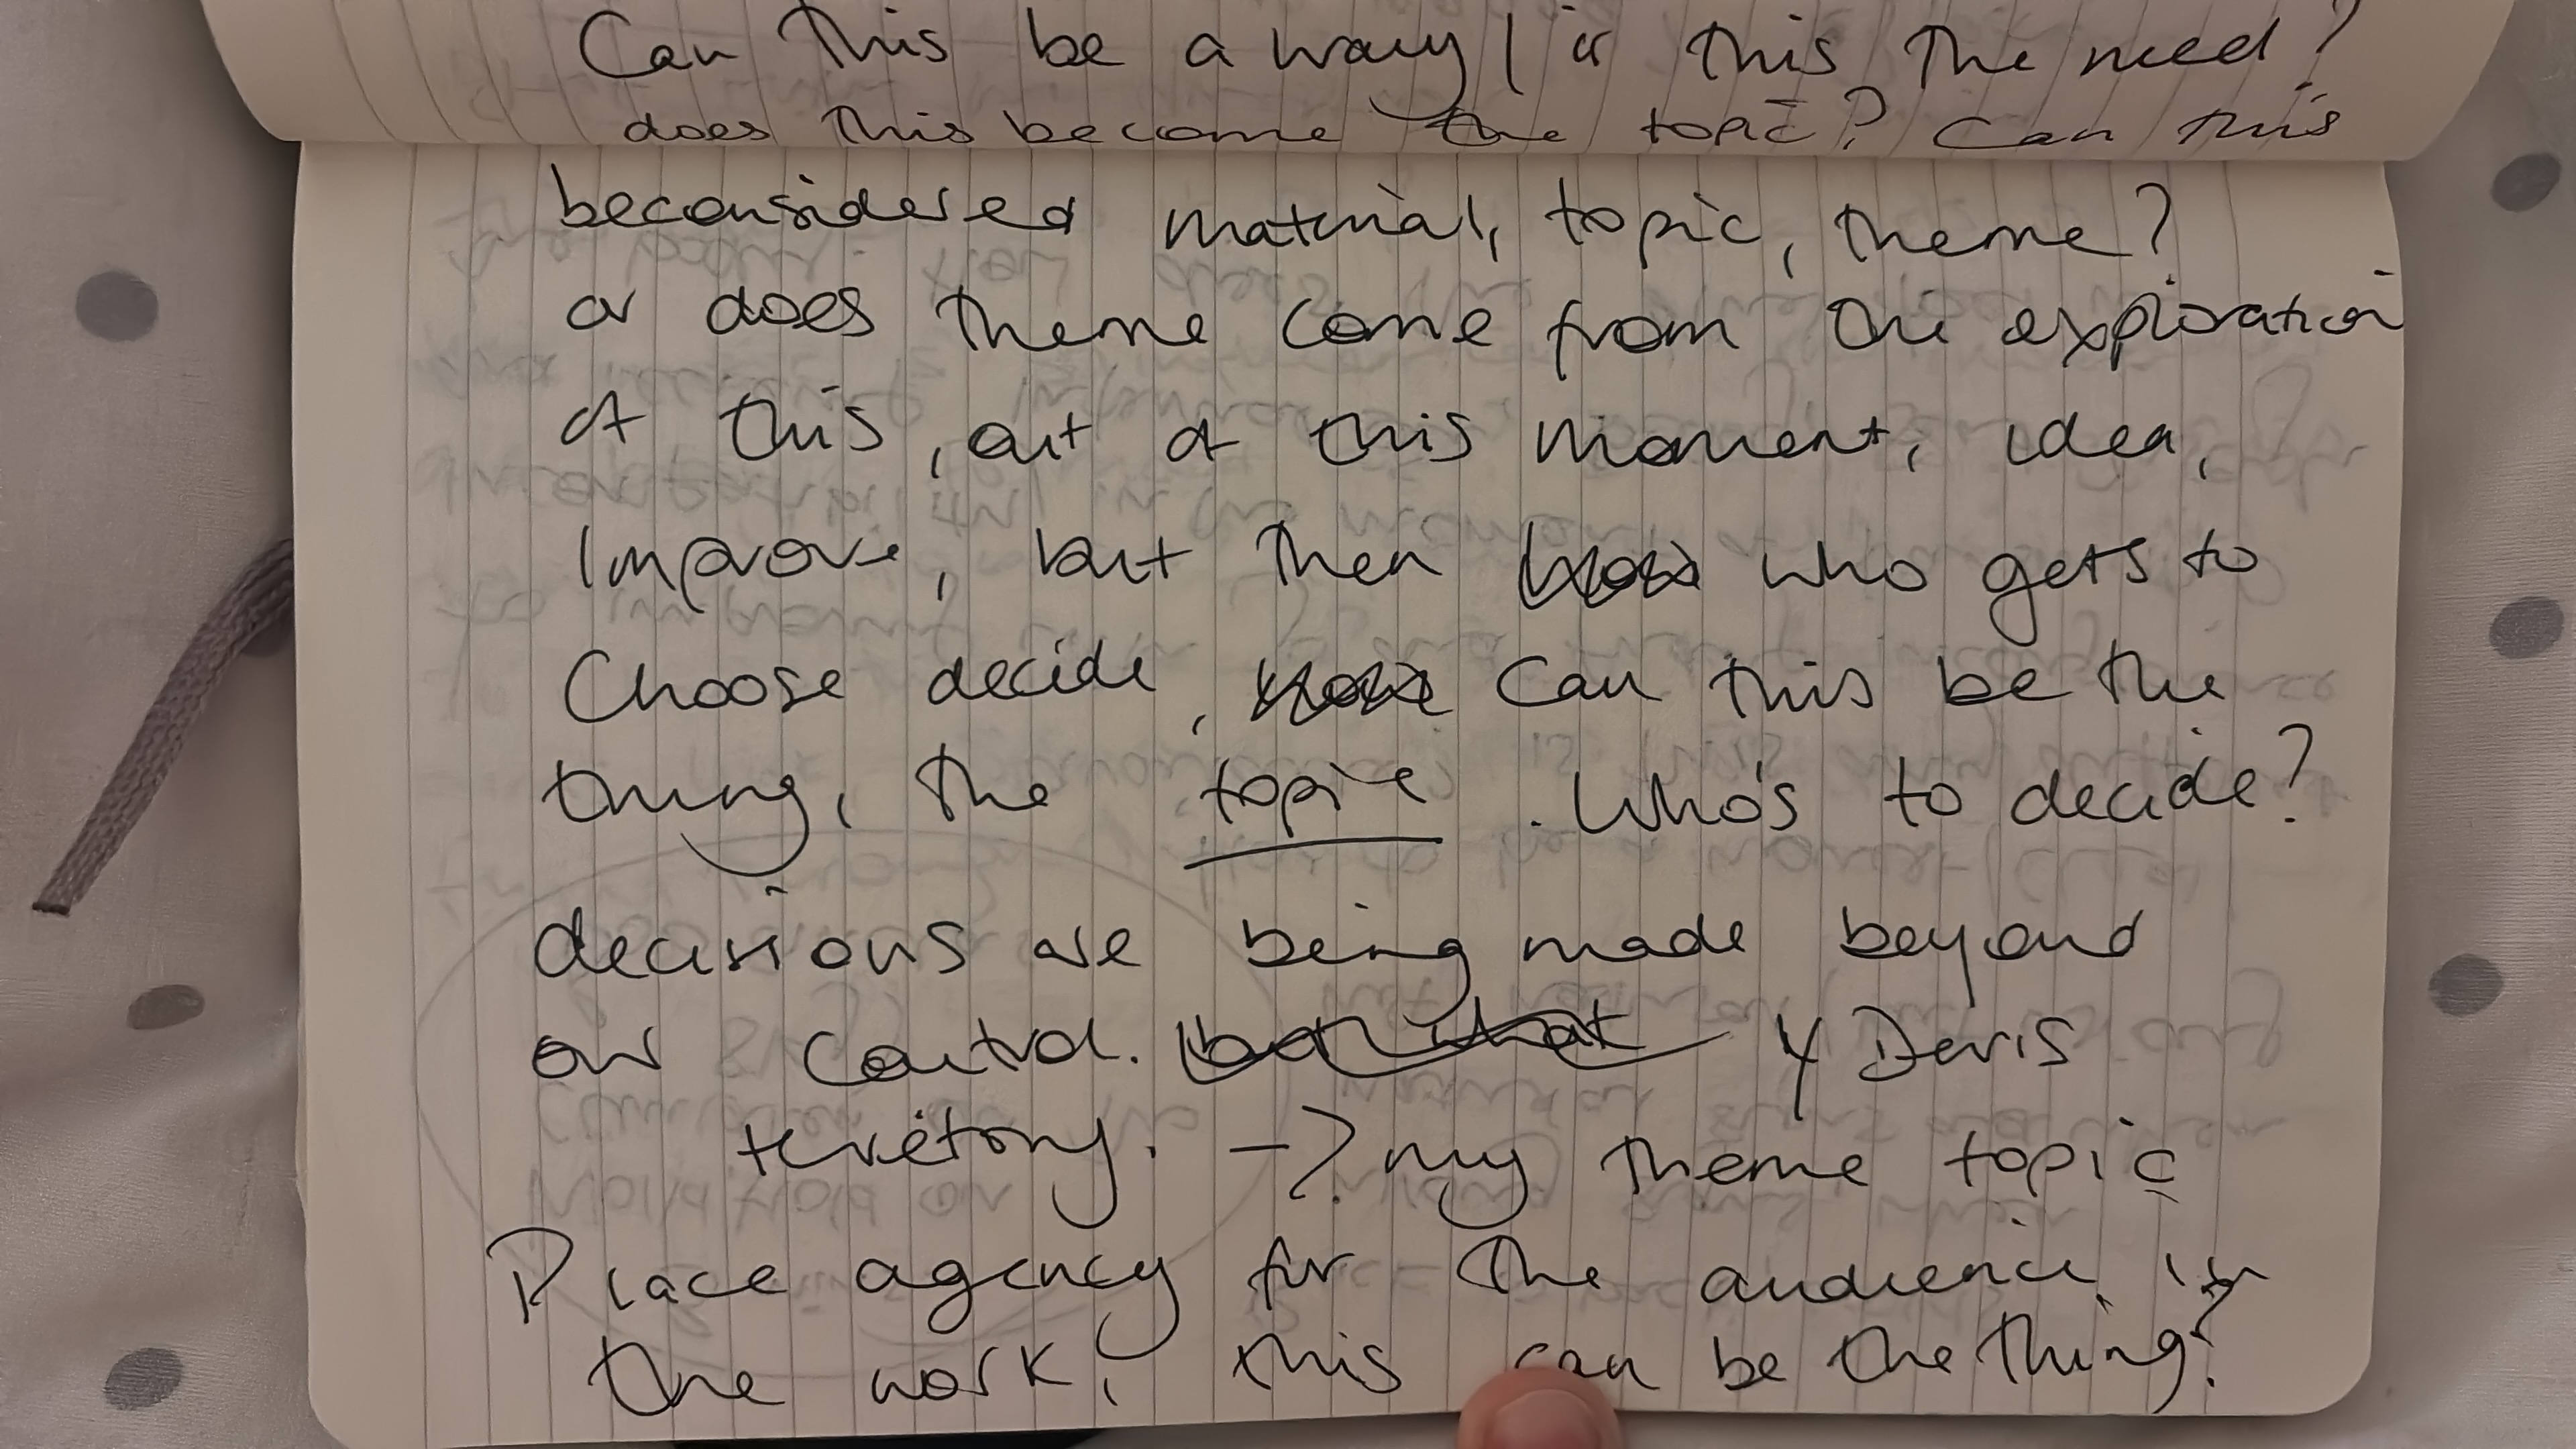 Can this be a way / is this the need?
does this become the topic? Can this
beconsidered material, topic, theme?
or does theme come from the exploration
of this, out of this moment, idea,
Improve, but then who gets to
Choose decide, Can this be the
thing, the topic. Who's to decide?
decisions are being made beyond
our control. but what Y Davis
territory. -> my theme topic
Place agency for the audience in
the work, this can be the thing?